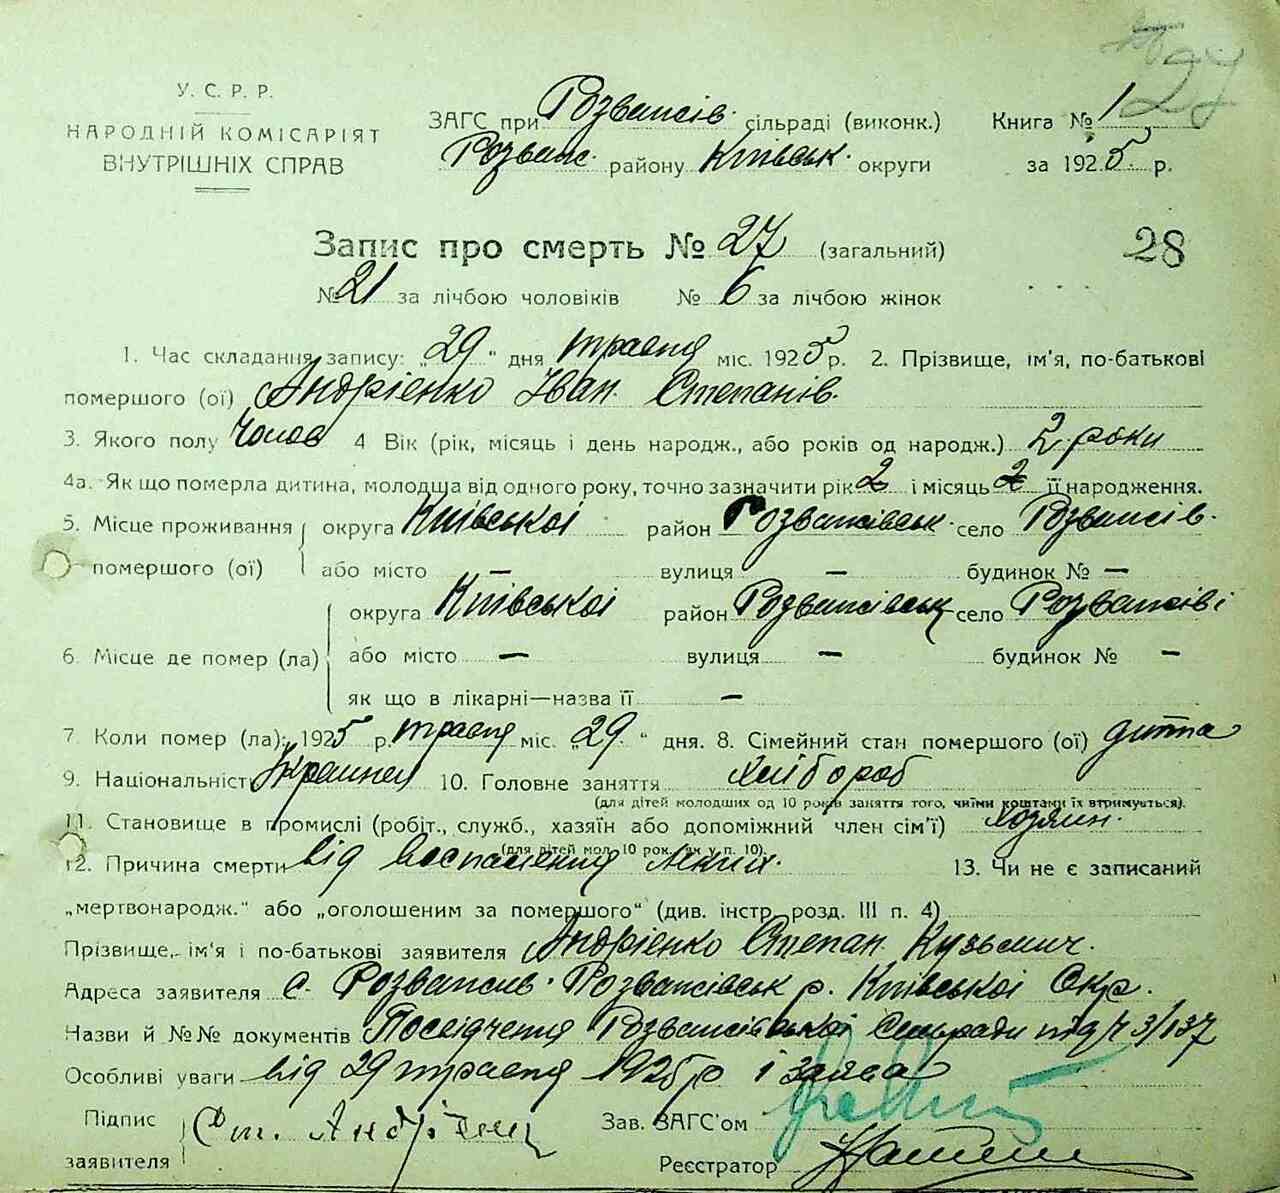 27
У. С. Р. Р.
НАРОДНІЙ КОМІСАРІЯТ
ВНУТРІШНІХ СПРАВ
ЗАГС при Розважів. сільраді (виконк.) Книга № 1
Розваж. району Київськ. округи за 1925 р.
Запис про смерть № 27 (загальний) 28
№ 21 за лічбою чоловіків № 6 за лічбою жінок
1. Час складання запису: „29" дня травня міс. 1925 р. 2. Прізвище, ім'я, по-батькові
помершого (ої) Андрієнко Іван Степанів.
3. Якого полу Чолов 4 Вік (рік, місяць і день народж., або років од народж.) 2 роки
4а. Як що померла дитина, молодща від одного року, точно зазначити рік 2 і місяць 2 її народження.
5. Місце проживання округа Київської район Розважівськ. село Розважів.
помершого (ої) або місто — вулиця — будинок № —
округа Київської район Розважівськ село Розважіві
6. Місце де помер (ла) або місто — вулиця — будинок № —
як що в лікарні—назва її —
7 Коли помер (ла): 1925 р. травня міс. „29" дня. 8. Сімейний стан помершого (ої) дитина
9. Національність 10. Головне заняття хлібороб
(для дітей молодших од 10 років заняття того, чиїми коштами їх втримується).
11. Становище в промислі (робіт., служб., хазяїн або допоміжний член сім'ї) хозяин.
(для дітей мол. 10 рок. як у п. 10).
12. Причина смерти від воспаления легких. 13. Чи не є записаний
„мертвонародж." або „оголошеним за помершого" (див. інстр. розд. III п. 4)
Прізвище, ім'я і по-батькові заявителя Андрієнко Степан Кузьмич.
Адреса заявителя с. Розважив. Розважівськ р. Київської Окр.
Назви й №№ документів Посвідчення Розважівської Сельради під ч 3/137
Особливі уваги від 29 травня 1925 р і заява
Підпис
заявителя Ст. Андрієнко
Зав. ЗАГС'ом
Реєстратор